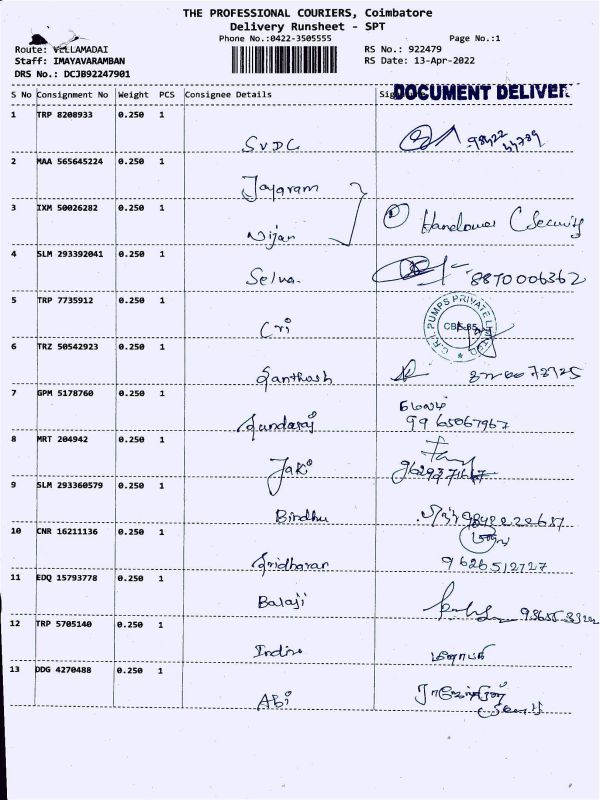 THE PROFESSIONAL COURIERS, Coimbatore
Delivery Runsheet - SPT
Phone No.:0422-3505555 Page No.:1
Route: VELLAMADAI RS No.: 922479
Staff: IMAYAVARAMBAN RS Date: 13-Apr-2022
DRS No.: DCJB92247901
DOCUMENT DELIVER
S No Consignment No Weight PCS Consignee Details
1 TRP 8208933 0.250 1
SVDC
2 MAA 565645224 0.250 1
Jayaram
3 IXM 50026282 0.250 1
Nijan Handover (Security
4 SLM 293392041 0.250 1
Selva 8870006362
5 TRP 7735912 0.250 1
Cri C.R.I. PUMPS PRIVATE LIMITED
6 TRZ 50542923 0.250 1
Santhosh
7 GPM 5178760 0.250 1
Sundaraj 9965067967
8 MRT 204942 0.250 1
Jaki
9 SLM 293360579 0.250 1
Bindhu
10 CNR 16211136 0.250 1
Sridharan 9626512727
11 EDQ 15793778 0.250 1
Balaji
12 TRP 5705140 0.250 1
13 DDG 4270488 0.250 1
Abi